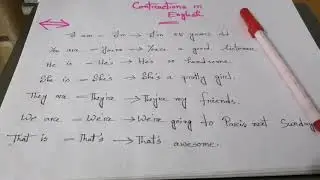 Contractions in
English
I am – I'm → I'm 20 years old
You are – You're → You're a good listener.
He is – He's → He's so handsome.
She is – She's → She's a pretty girl.
They are – They're → They're my friends.
We are – We're → We're going to Paris next Sunday
That is – That's → That's awesome.